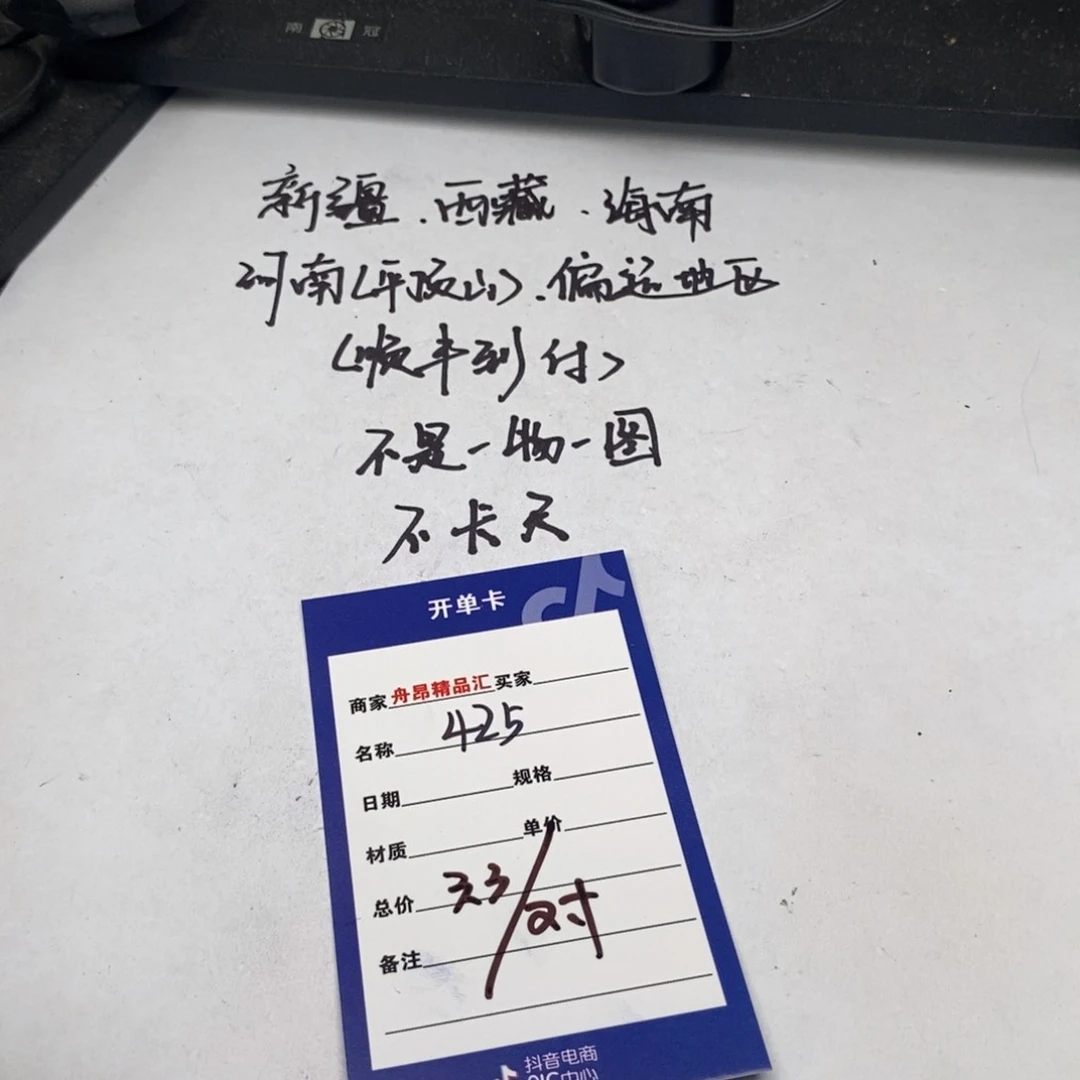 南冠
新疆.西藏.海南
河南(平顶山).偏远地区
(顺丰到付)
不是一物一图
不卡天
开单卡
商家舟昂精品汇买家
名称 425
日期 规格
材质 单价
总价 33/对
备注
抖音电商
QIC中心